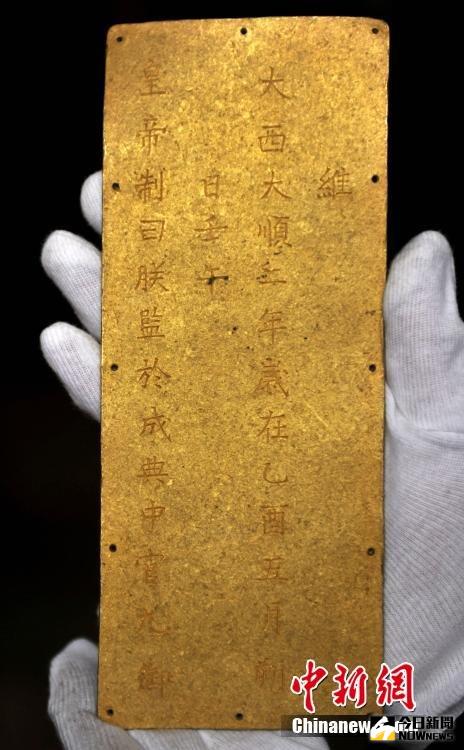 維
大西大順二年歲在乙酉五月朔
日壬午
皇帝制曰朕監於成典中宮九御
中新網
Chinanew
今日新聞
NOWNEWS